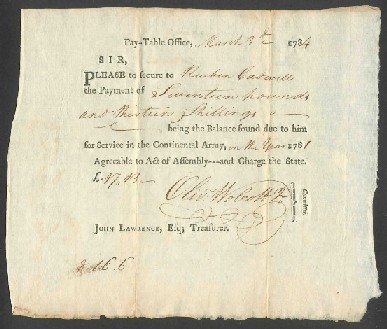 Pay-Table Office, March 3d 1784
SIR,
PLEASE to secure to Reuben
the Payment of Seventeen pounds
and thirteen Shillings
being the Balance found due to him
for Service in the Continental Army, in the Year 1781
Agreeable to Act of Assembly---and Charge the State.
£17.13
Oliv Wolcott Jr
John Lawrence, Esq; Treasurer.